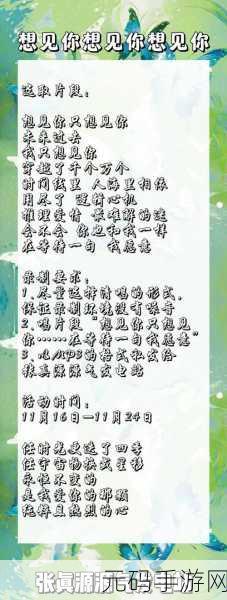 想见你想见你想见你
选取片段：
想见你只想见你
未来过去
我只想见你
穿越了千个万个
时间线里 人海里相依
用尽了 逻辑心机
推理爱情 最难解的谜
会不会 你也和我一样
在等待一句 我愿意
录制要求：
1.尽量选择清唱的形式，
保证录制环境没有噪音
2.唱片段“想见你只想见
你……在等待一句我愿意”
3.以MP3的格式私发给
张真源源气发电站
活动时间：
11月16日—11月24日
任时光更迭了四季
任宇宙物换或星移
永恒不变的
是我爱你的那颗
纯粹且热烈的心
张真源源
元码手游网